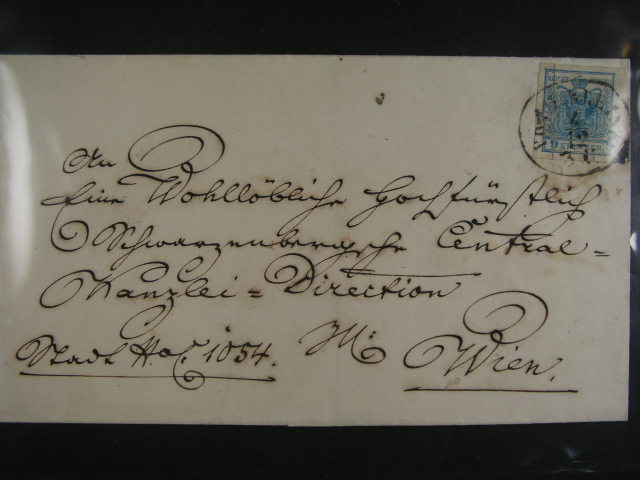 An
Eine Wohllöbliche Hochfürstlich
Schwarzenbergsche Central-
Kanzlei-Direction
Stadt No. 1054. in Wien.
9 KREUZER